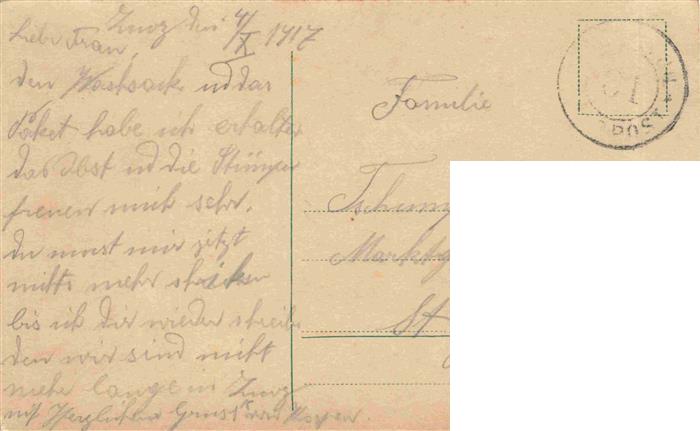 Zuoz den 4/X 1917
Liebe Frau,
den Washsack ud das
Paket habe ich erhalten
das Obst ud die Stümpen
freuen mich sehr.
du must mir jetzt
nichts mehr schicken
bis ich dir wieder schreibe
den wir sind nicht
mehr lange in Zuoz
mit Herzlichem Gruss
Familie
Marktg
St
POST